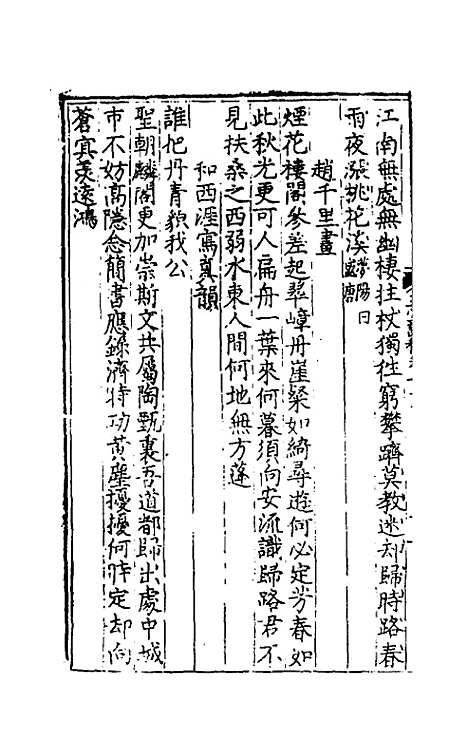 江南無處無幽棲拄杖獨徃窮攀躋莫教迷却歸時路春
雨夜漲桃花溪
趙千里畫
煙花樓閣參差起翠嶂丹崖粲如綺尋遊何必定芳春如
此秋光更可人扁舟一葉來何暮須向安流識歸路君不
見扶桑之西弱水東人間何地無方蓬
和西涯寫眞韻
誰把丹青貌我公
聖朝麟閣更加崇斯文共屬陶甄裏吾道都歸出處中城
市不妨高隱念簡書應錄濟時功黄塵擾擾何時定却向
蒼冥羨遠鴻